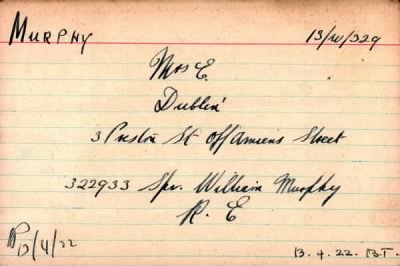 MURPHY 13/W/329
Mrs E.
Dublin
3 Preston St off Amiens Street
322933 Spr. William Murphy
R. E
13/4/22 13.4.22. B.T.